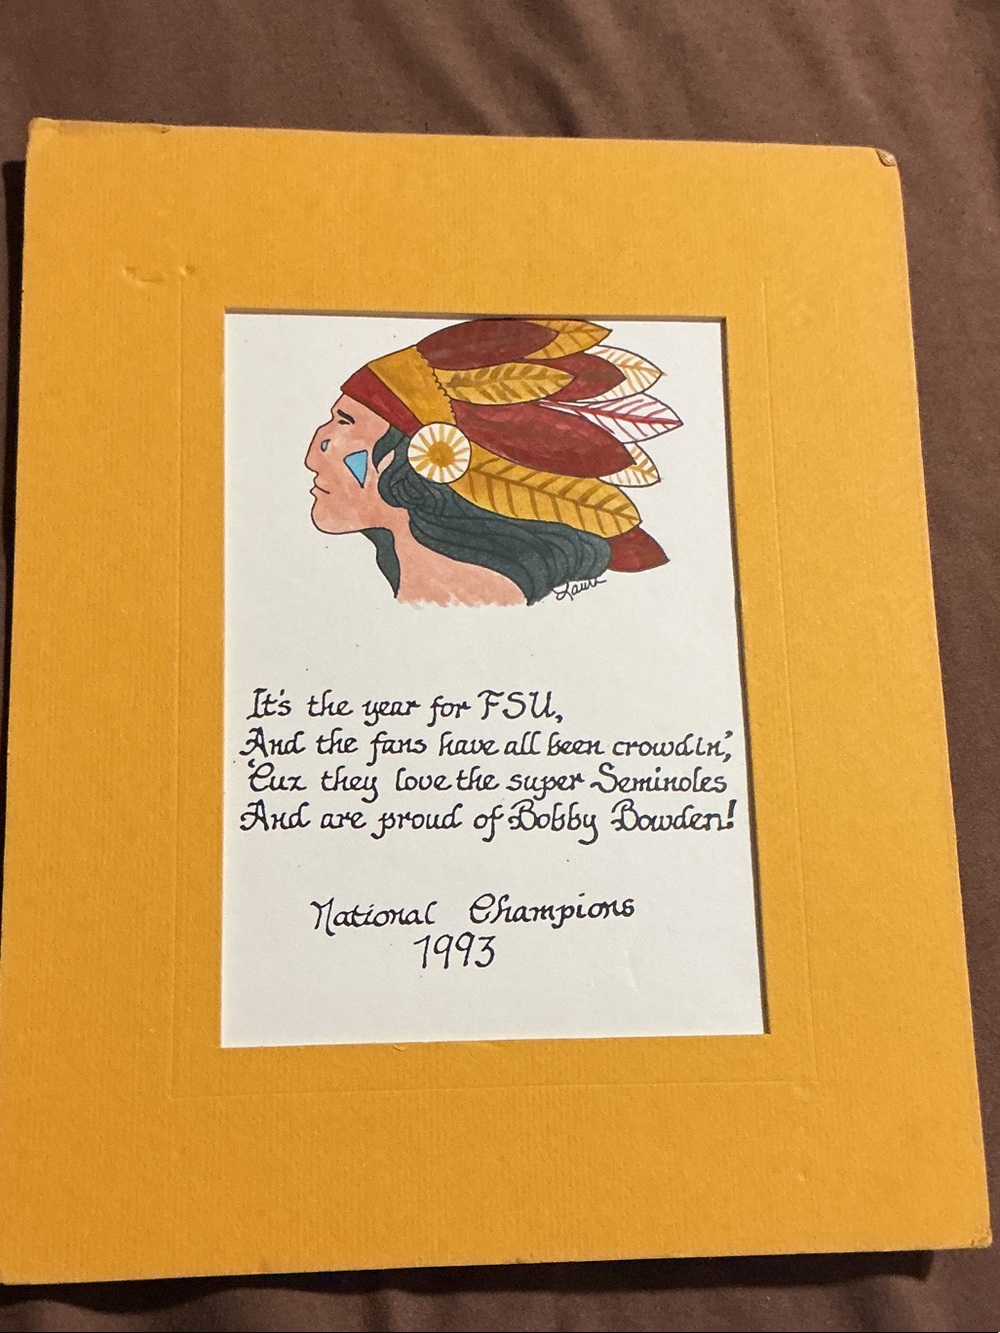 Laura
It's the year for FSU,
And the fans have all been crowdin',
'Cuz they love the super Seminoles
And are proud of Bobby Bowden!
National Champions
1993